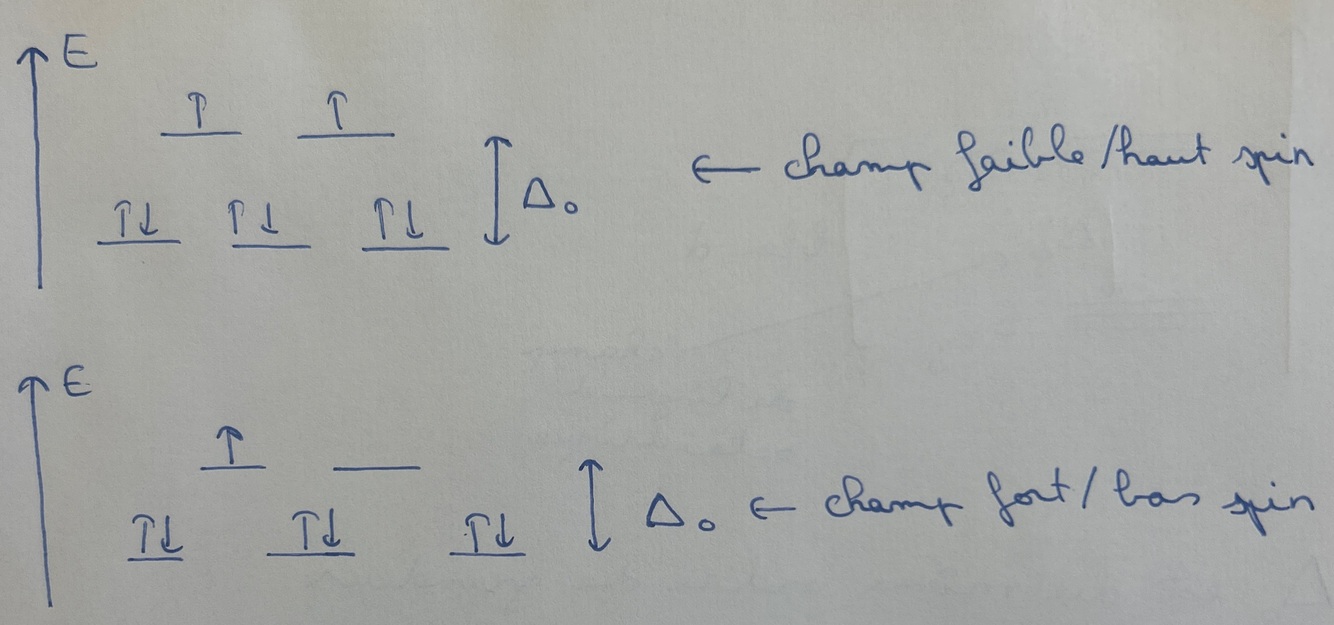 E
↑ ↑
↑↓ ↑↓ ↑↓ Δo ← champ faible/haut spin
E
↑
↑↓ ↑↓ ↑↓ Δo ← champ fort/bas spin